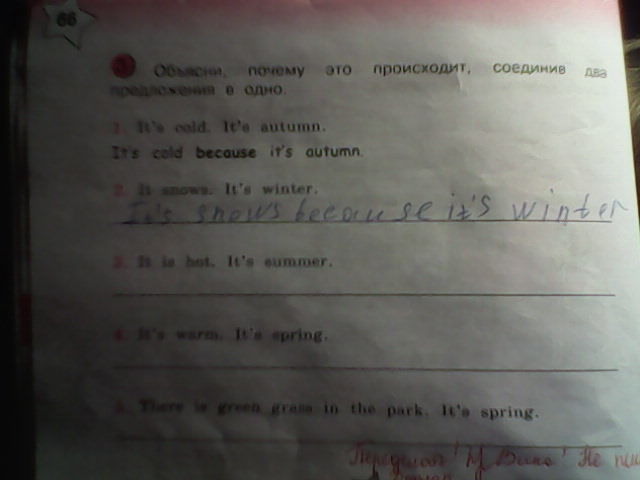 66
Объясни, почему это происходит, соединив два
предложения в одно.
1. It's cold. It's autumn.
It's cold because it's autumn.
2. It snows. It's winter.
It's snows because it's winter
3. It is hot. It's summer.
4. It's warm. It's spring.
5. There is green grass in the park. It's spring.
Не